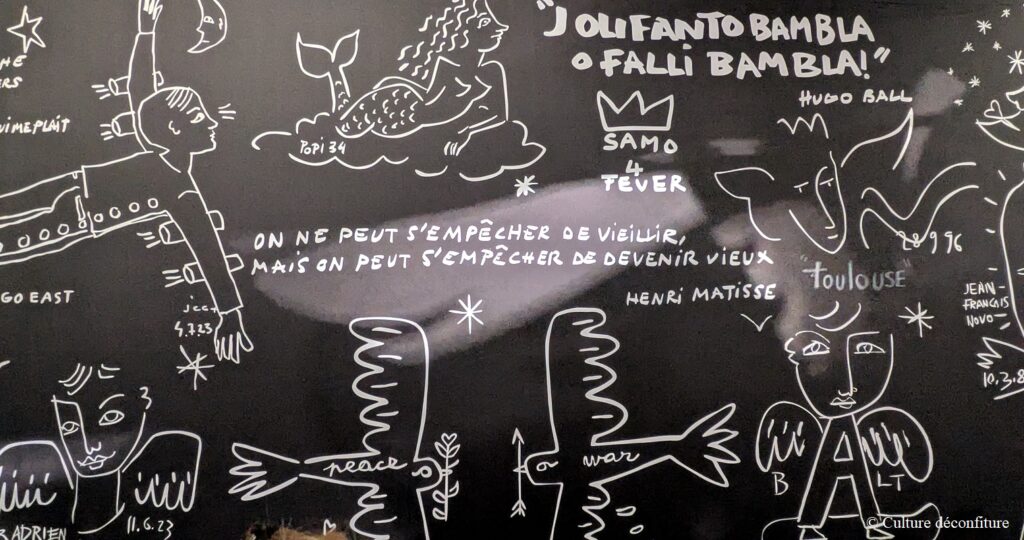 "JOLIFANTO BAMBLA
O FALLI BAMBLA!"
HUGO BALL
POPI 34
SAMO
4
FEVER
ON NE PEUT S'EMPÊCHER DE VIEILLIR,
MAIS ON PEUT S'EMPÊCHER DE DEVENIR VIEUX
HENRI MATISSE
28 9 96
"toulouse
GO EAST
4.7.23
JEAN-
FRANÇOIS
NOVO-
10.3.8
peace
war
B
LT
11.6.23
ADRIEN
© Culture déconfiture